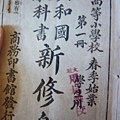 高等小學校 春季始業
第一冊
學生用
和國
科書
新修身
商務印書館發行